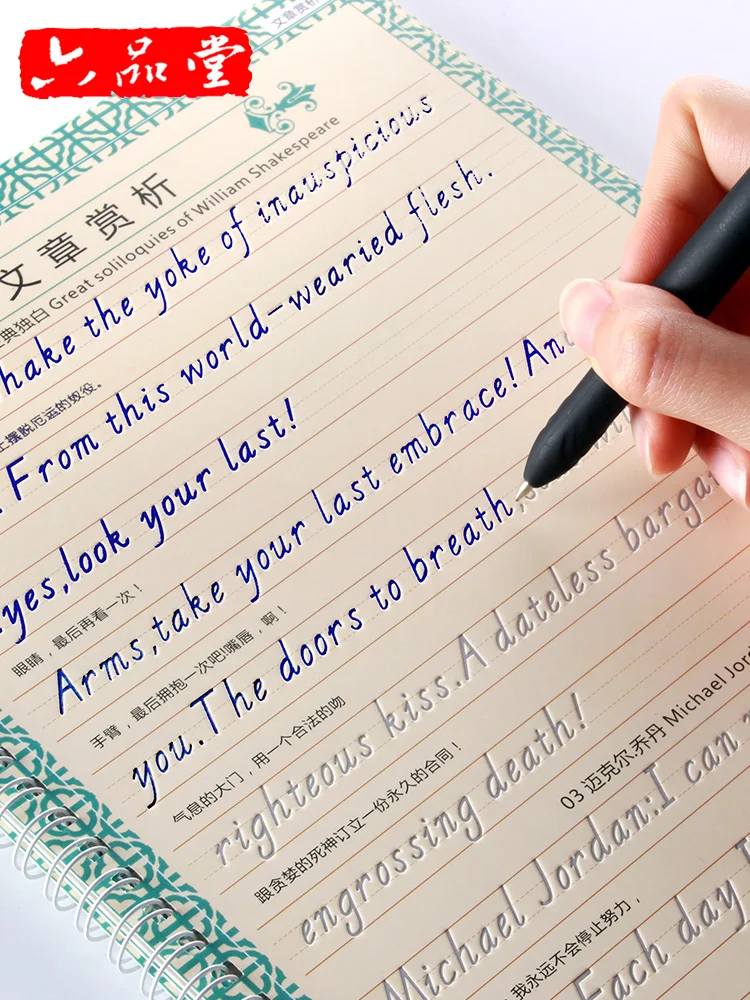 六品堂
文章赏析
文章赏析
典独白 Great soliloquies of William Shakespeare
hake the yoke of inauspicious
上摆脱厄运的奴役。
.From this world-wearied flesh.
yes,look your last!
眼睛，最后再看一次！
Arms,take your last embrace! An
手臂，最后拥抱一次吧!嘴唇，啊！
you.The doors to breath,
气息的大门，用一个合法的吻
righteous kiss.A dateless barga
跟贪婪的死神订立一份永久的合同！
engrossing death!
03 迈克尔.乔丹 Michael Jord
Michael Jordan:I can
我永远不会停止努力，
Each day,I